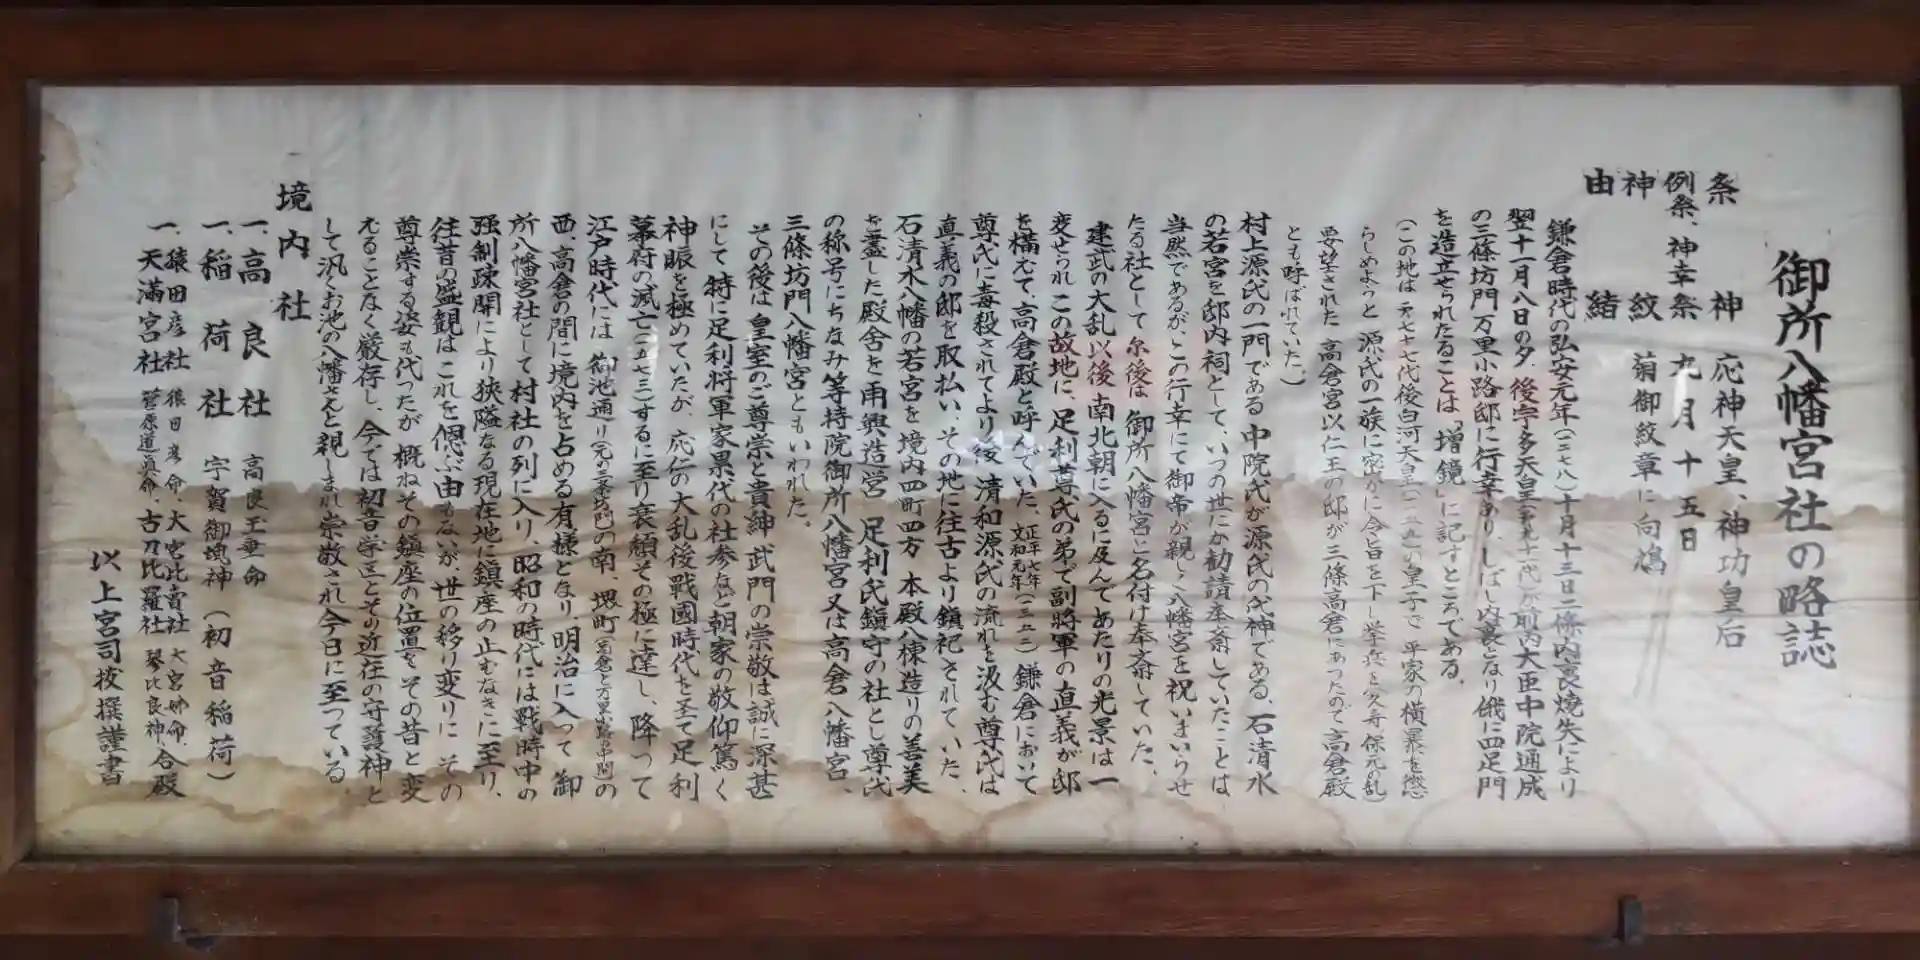 御所八幡宮社の略誌
祭神 応神天皇、神功皇后
例祭、神幸祭 九月十五日
神紋 菊御紋章に向鳩
由緒
鎌倉時代の弘安元年(一二七八)十月十三日二條内裏焼失により
翌十一月八日の夕、後宇多天皇(第九十一代)が前内大臣中院通成
の三條坊門万里小路邸に行幸あり、しばし内裏となり俄に四足門
を造立せられたることは「増鏡」に記すところである。
(この地は 第七十七代後白河天皇(一一五五)の皇子で 平家の横暴を懲
らしめようと 源氏の一族に密かに令旨を下し挙兵を(久寿、保元の乱)
要望された 高倉宮以仁王の邸が三條高倉にあったので高倉殿
とも呼ばれていた。)
村上源氏の一門である中院氏が源氏の氏神である、石清水
の若宮を邸内祠として、いつの世にか勧請奉斎していたことは
当然であるが、この行幸にて御帝が親しく八幡宮を祝いまいらせ
たる社として尓後は 御所八幡宮と名付け奉斎していた。
建武の大乱以後南北朝に入るに及んであたりの光景は一
変せられこの故地に、足利尊氏の弟で副将軍の直義が邸
を構えて、高倉殿と呼んでいた。正平七年文和元年(一三五二)鎌倉において
尊氏に毒殺されてより後 清和源氏の流れを汲む尊氏は
直義の邸を取払い、その地に往古より鎮祀されていた、
石清水八幡の若宮を境内四町四方 本殿八棟造りの善美
を盡した殿舎を再興造営 足利氏鎮守の社とし尊氏
の称号にちなみ等持院御所八幡宮又は高倉八幡宮、
三條坊門八幡宮ともいわれた。
その後は皇室のご尊崇と貴紳武門の崇敬は誠に深甚
にして 特に足利将軍家累代の社参など朝家の敬仰篤く
神賑を極めていたが、応仁の大乱後戰國時代を圣て足利
幕府の滅亡(一五七三)するに至り衰頽その極に達し、降って
江戸時代には 御池通り(元の三条坊門)の南、堺町(高倉と万里小路の中間)の
西、高倉の間に境内を占める有様となり、明治に入って 御
所八幡宮社として 村社の列に入り、昭和の時代には戰時中の
强制疎開により狭隘なる現在地に鎮座の止むなきに至り、
往昔の盛観はこれを偲ぶ由もないが、世の移り変りに その
尊崇する姿も代ったが 概ねその鎮座の位置をその昔と変
えることなく厳存し、今では初音学区とその近在の守護神と
して汎くお池の八幡さんと親しまれ崇敬され今日に至っている。
境内社
一、高良社 高良玉垂命
一、稲荷社 宇賀御魂神(初音稲荷)
一、猿田彦社 猿田彦命、大宮比賣社 大宮姫命、
一、天滿宮社 菅原道真命、古刀比羅社 琴比良神、合殿
以上宮司 撰謹書